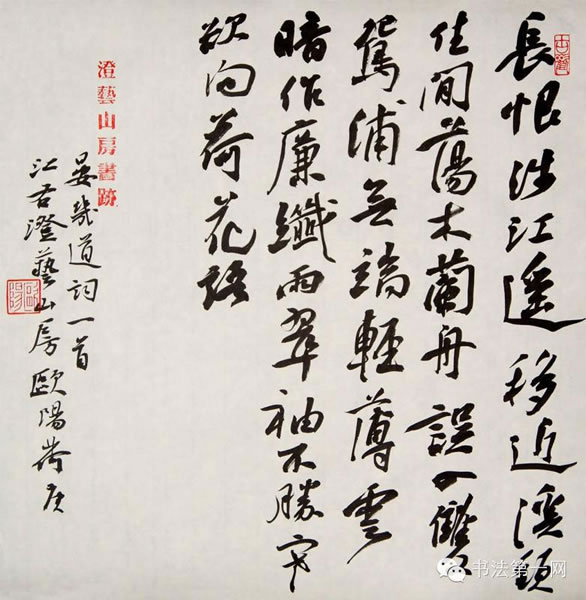 長恨涉江遥移近溪頭
住閒蕩木蘭舟誤入雙
鴛浦無端輕薄雲
暗作廉纖雨翠袖不勝寒
欲向荷花語
澄藝山房書跡
晏幾道詞一首
江右澄藝山房歐陽荷庚
书法第一网